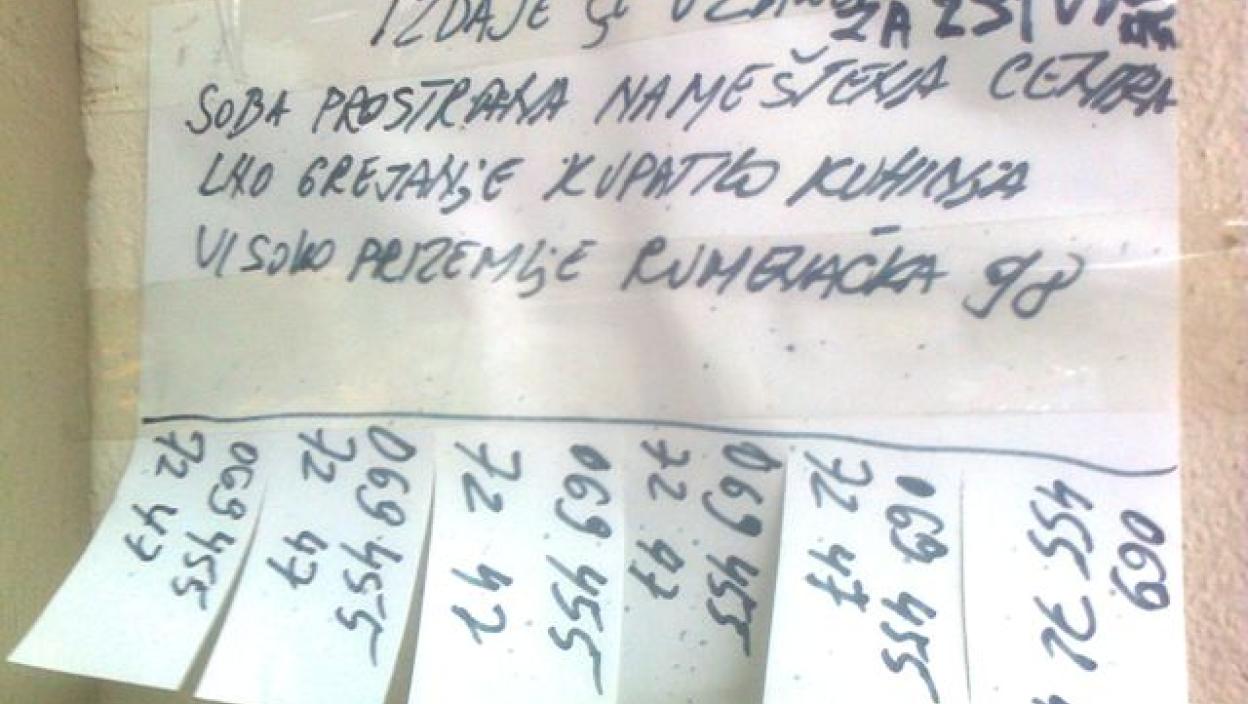 IZDAJE SE
ZA
SOBA PROSTRANA NAMEŠTENA CENTRA
LNO GREJANJE KUPATILO KUHINJA
VISOKO PRIZEMLJE RUMENAČKA 98
069 455
72 47
069 455
72 47
069 455
72 47
069 455
72 47
069 455
72 47
069
455 72